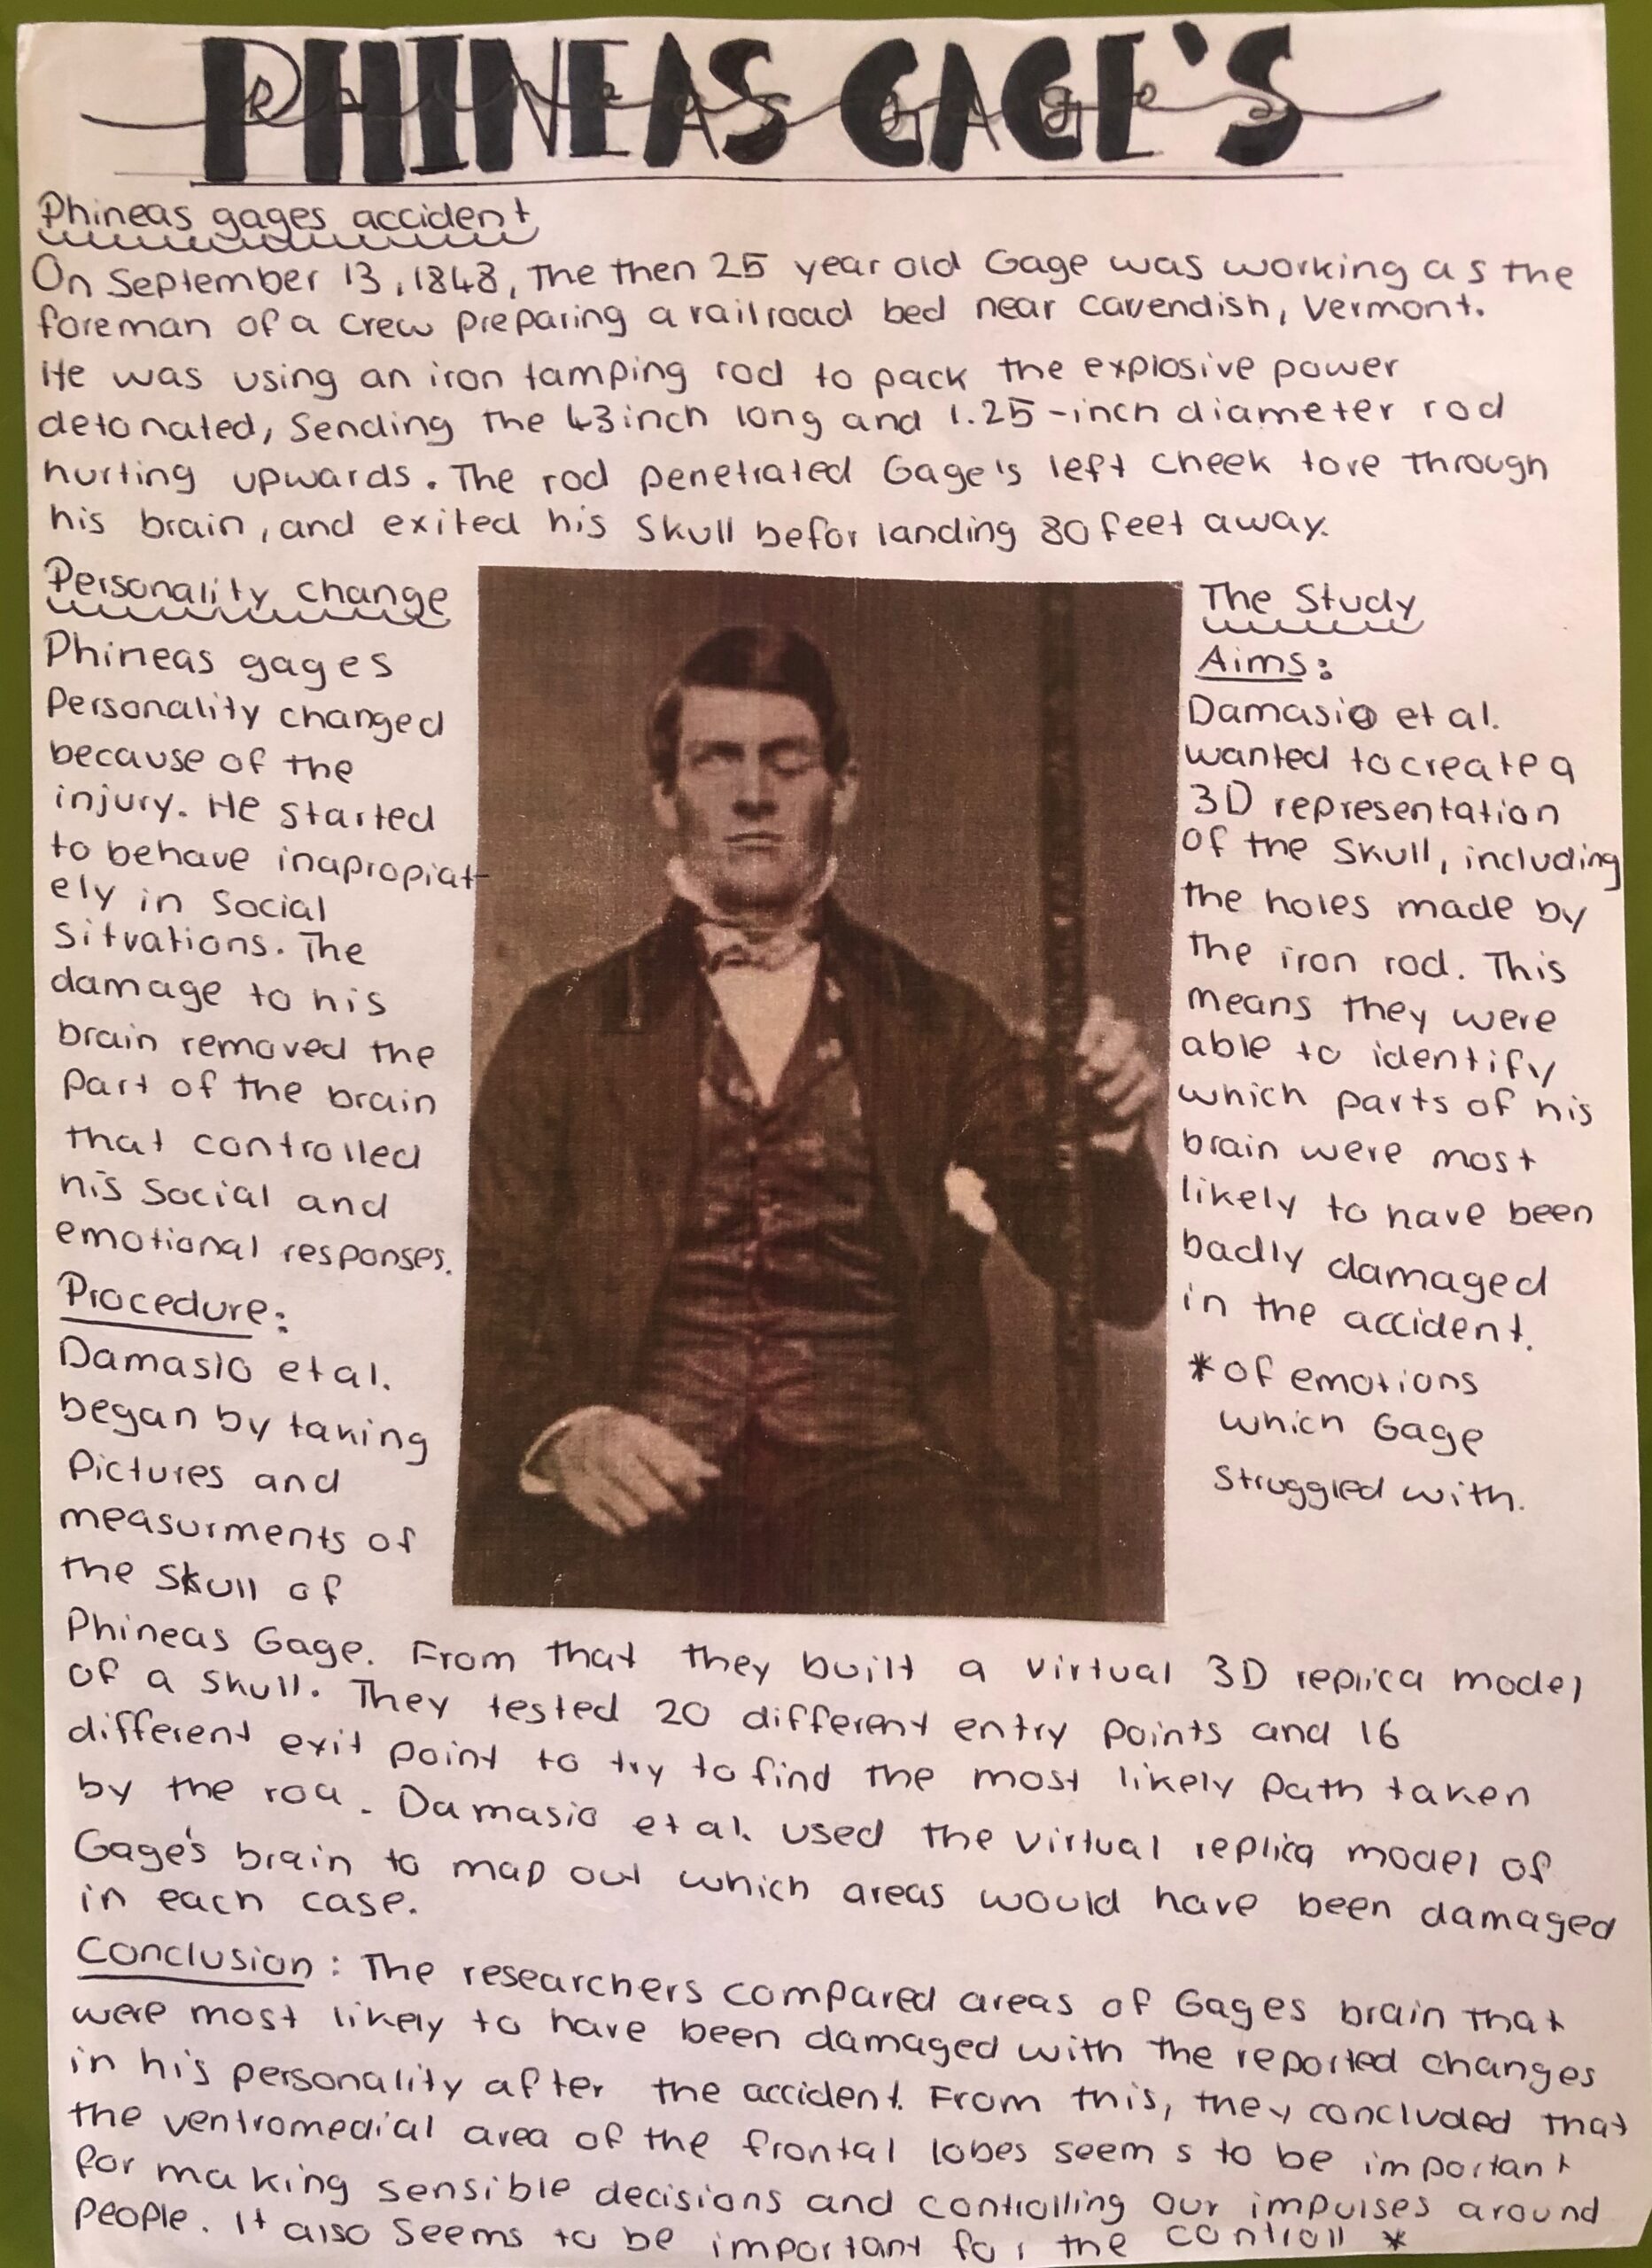 PHINEAS GAGE'S
Phineas Gage's
Phineas gages accident
On September 13, 1848, The then 25 year old Gage was working as the
foreman of a crew preparing a railroad bed near cavendish, Vermont.
He was using an iron tamping rod to pack the explosive power
detonated, Sending the 43 inch long and 1.25-inch diameter rod
hurting upwards. The rod penetrated Gage's left cheek tore through
his brain, and exited his skull befor landing 80 feet away.
Personality change
Phineas gages
Personality changed
because of the
injury. He started
to behave inapropiat
ely in social
situations. The
damage to his
brain removed the
part of the brain
that controlled
his social and
emotional responses.
Procedure:
Damasio et al.
began by taking
Pictures and
measurments of
the skull of
Phineas Gage. From that they built a virtual 3D replica model
of a skull. They tested 20 different entry points and 16
different exit point to try to find the most likely path taken
by the rod. Damasio et al. used the virtual replica model of
Gage's brain to map out which areas would have been damaged
in each case.
The Study
Aims:
Damasio et al.
wanted to create a
3D representation
of the skull, including
the holes made by
the iron rod. This
means they were
able to identify
which parts of his
brain were most
likely to have been
badly damaged
in the accident.
*of emotions
which Gage
struggled with.
Conclusion: The researchers compared areas of Gages brain that
were most likely to have been damaged with the reported changes
in his personality after the accident. From this, they concluded that
the ventromedial area of the frontal lobes seem s to be important
for making sensible decisions and controlling our impulses around
people. It also seems to be important for the controll *